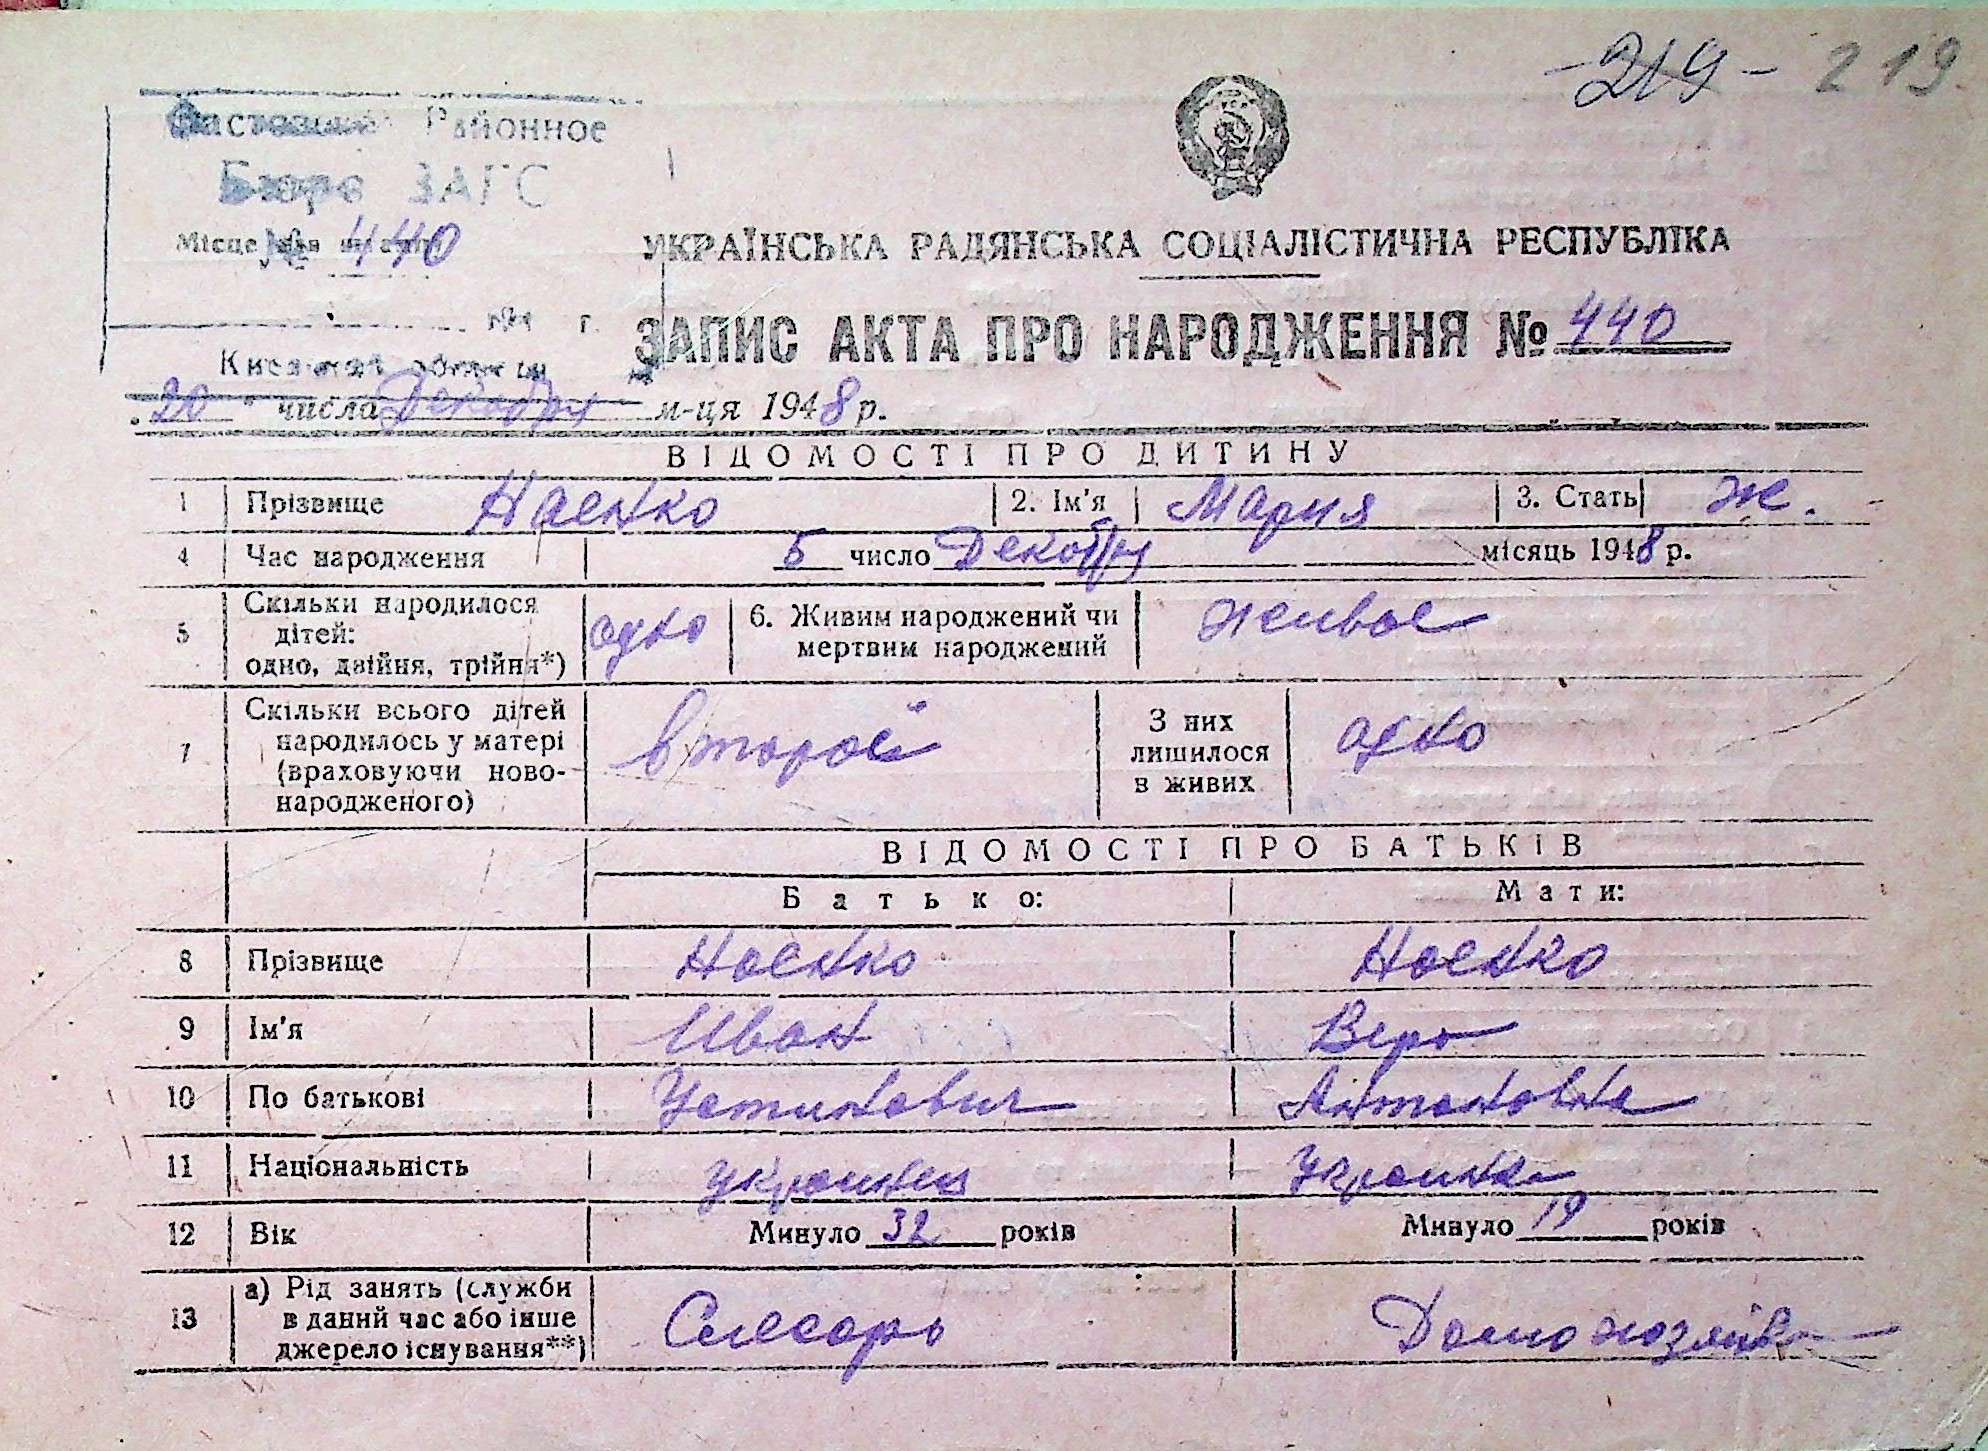 219 - 219
Районное
Бюро ЗАГС
№ 440
УКРАЇНСЬКА РАДЯНСЬКА СОЦІАЛІСТИЧНА РЕСПУБЛІКА
г.
ЗАПИС АКТА ПРО НАРОДЖЕННЯ № 440
"20" числа Декабря м-ця 1948 р.
ВІДОМОСТІ ПРО ДИТИНУ
1 Прізвище Наенко 2. Ім'я Мария 3. Стать Ж.
4 Час народження 5 число Декабря місяць 1948 р.
5 Скільки народилося дітей: одно, двійня, трійня*) одно 6. Живим народжений чи мертвим народжений живое
7 Скільки всього дітей народилось у матері (враховуючи ново-народженого) второй З них лишилося в живих одно
ВІДОМОСТІ ПРО БАТЬКІВ
Батько: Мати:
8 Прізвище Наенко Наенко
9 Ім'я Иван Вера
10 По батькові Устинович Антоновна
11 Національність украинец Украинка
12 Вік Минуло 32 років Минуло 19 років
13 а) Рід занять (служби в даний час або інше джерело існування**) Слесарь Домохозяйка